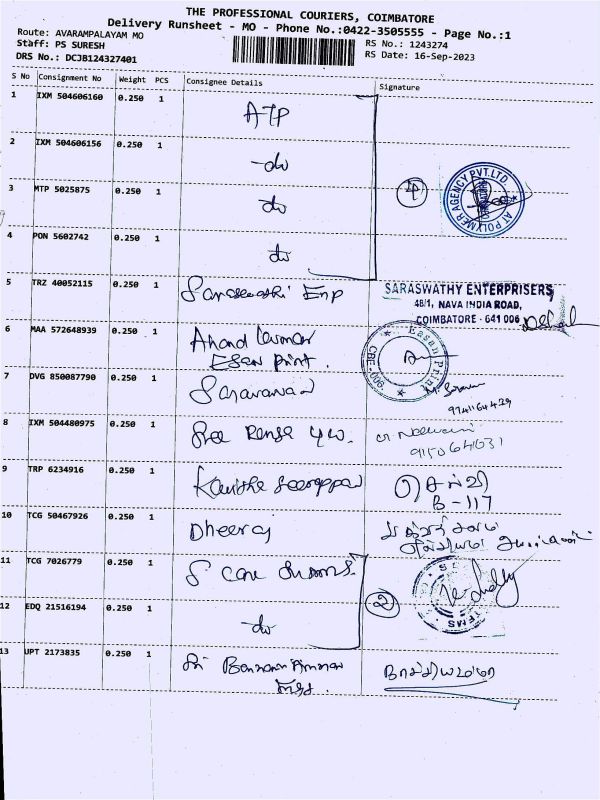 THE PROFESSIONAL COURIERS, COIMBATORE
Delivery Runsheet - MO - Phone No.:0422-3505555 - Page No.:1
Route: AVARAMPALAYAM MO
RS No.: 1243274
Staff: PS SURESH
RS Date: 16-Sep-2023
DRS No.: DCJB124327401
S No Consignment No Weight PCS Consignee Details Signature
1 IXM 504606160 0.250 1 ATP
2 IXM 504606156 0.250 1 -do
3 MTP 5025875 0.250 1 do
4 AT POLYMER AGENCY PVT.LTD.
4 PON 5602742 0.250 1 do
5 TRZ 40052115 0.250 1 Saraswathi Enp
SARASWATHY ENTERPRISERS
48/1, NAVA INDIA ROAD,
COIMBATORE - 641 006
6 MAA 572648939 0.250 1 Anand Kumar
Esan Print.
Easan Print CBE
7 DVG 850087790 0.250 1 Saravanan
8 IXM 504480975 0.250 1 Sree
915064631
9 TRP 6234916 0.250 1 Kavitha
செல்வி
B-117
10 TCG 50467926 0.250 1 Dheeraj
11 TCG 7026779 0.250 1 S Care
12 EDQ 21516194 0.250 1 do
2
13 UPT 2173835 0.250 1 Sri Bannari Amman